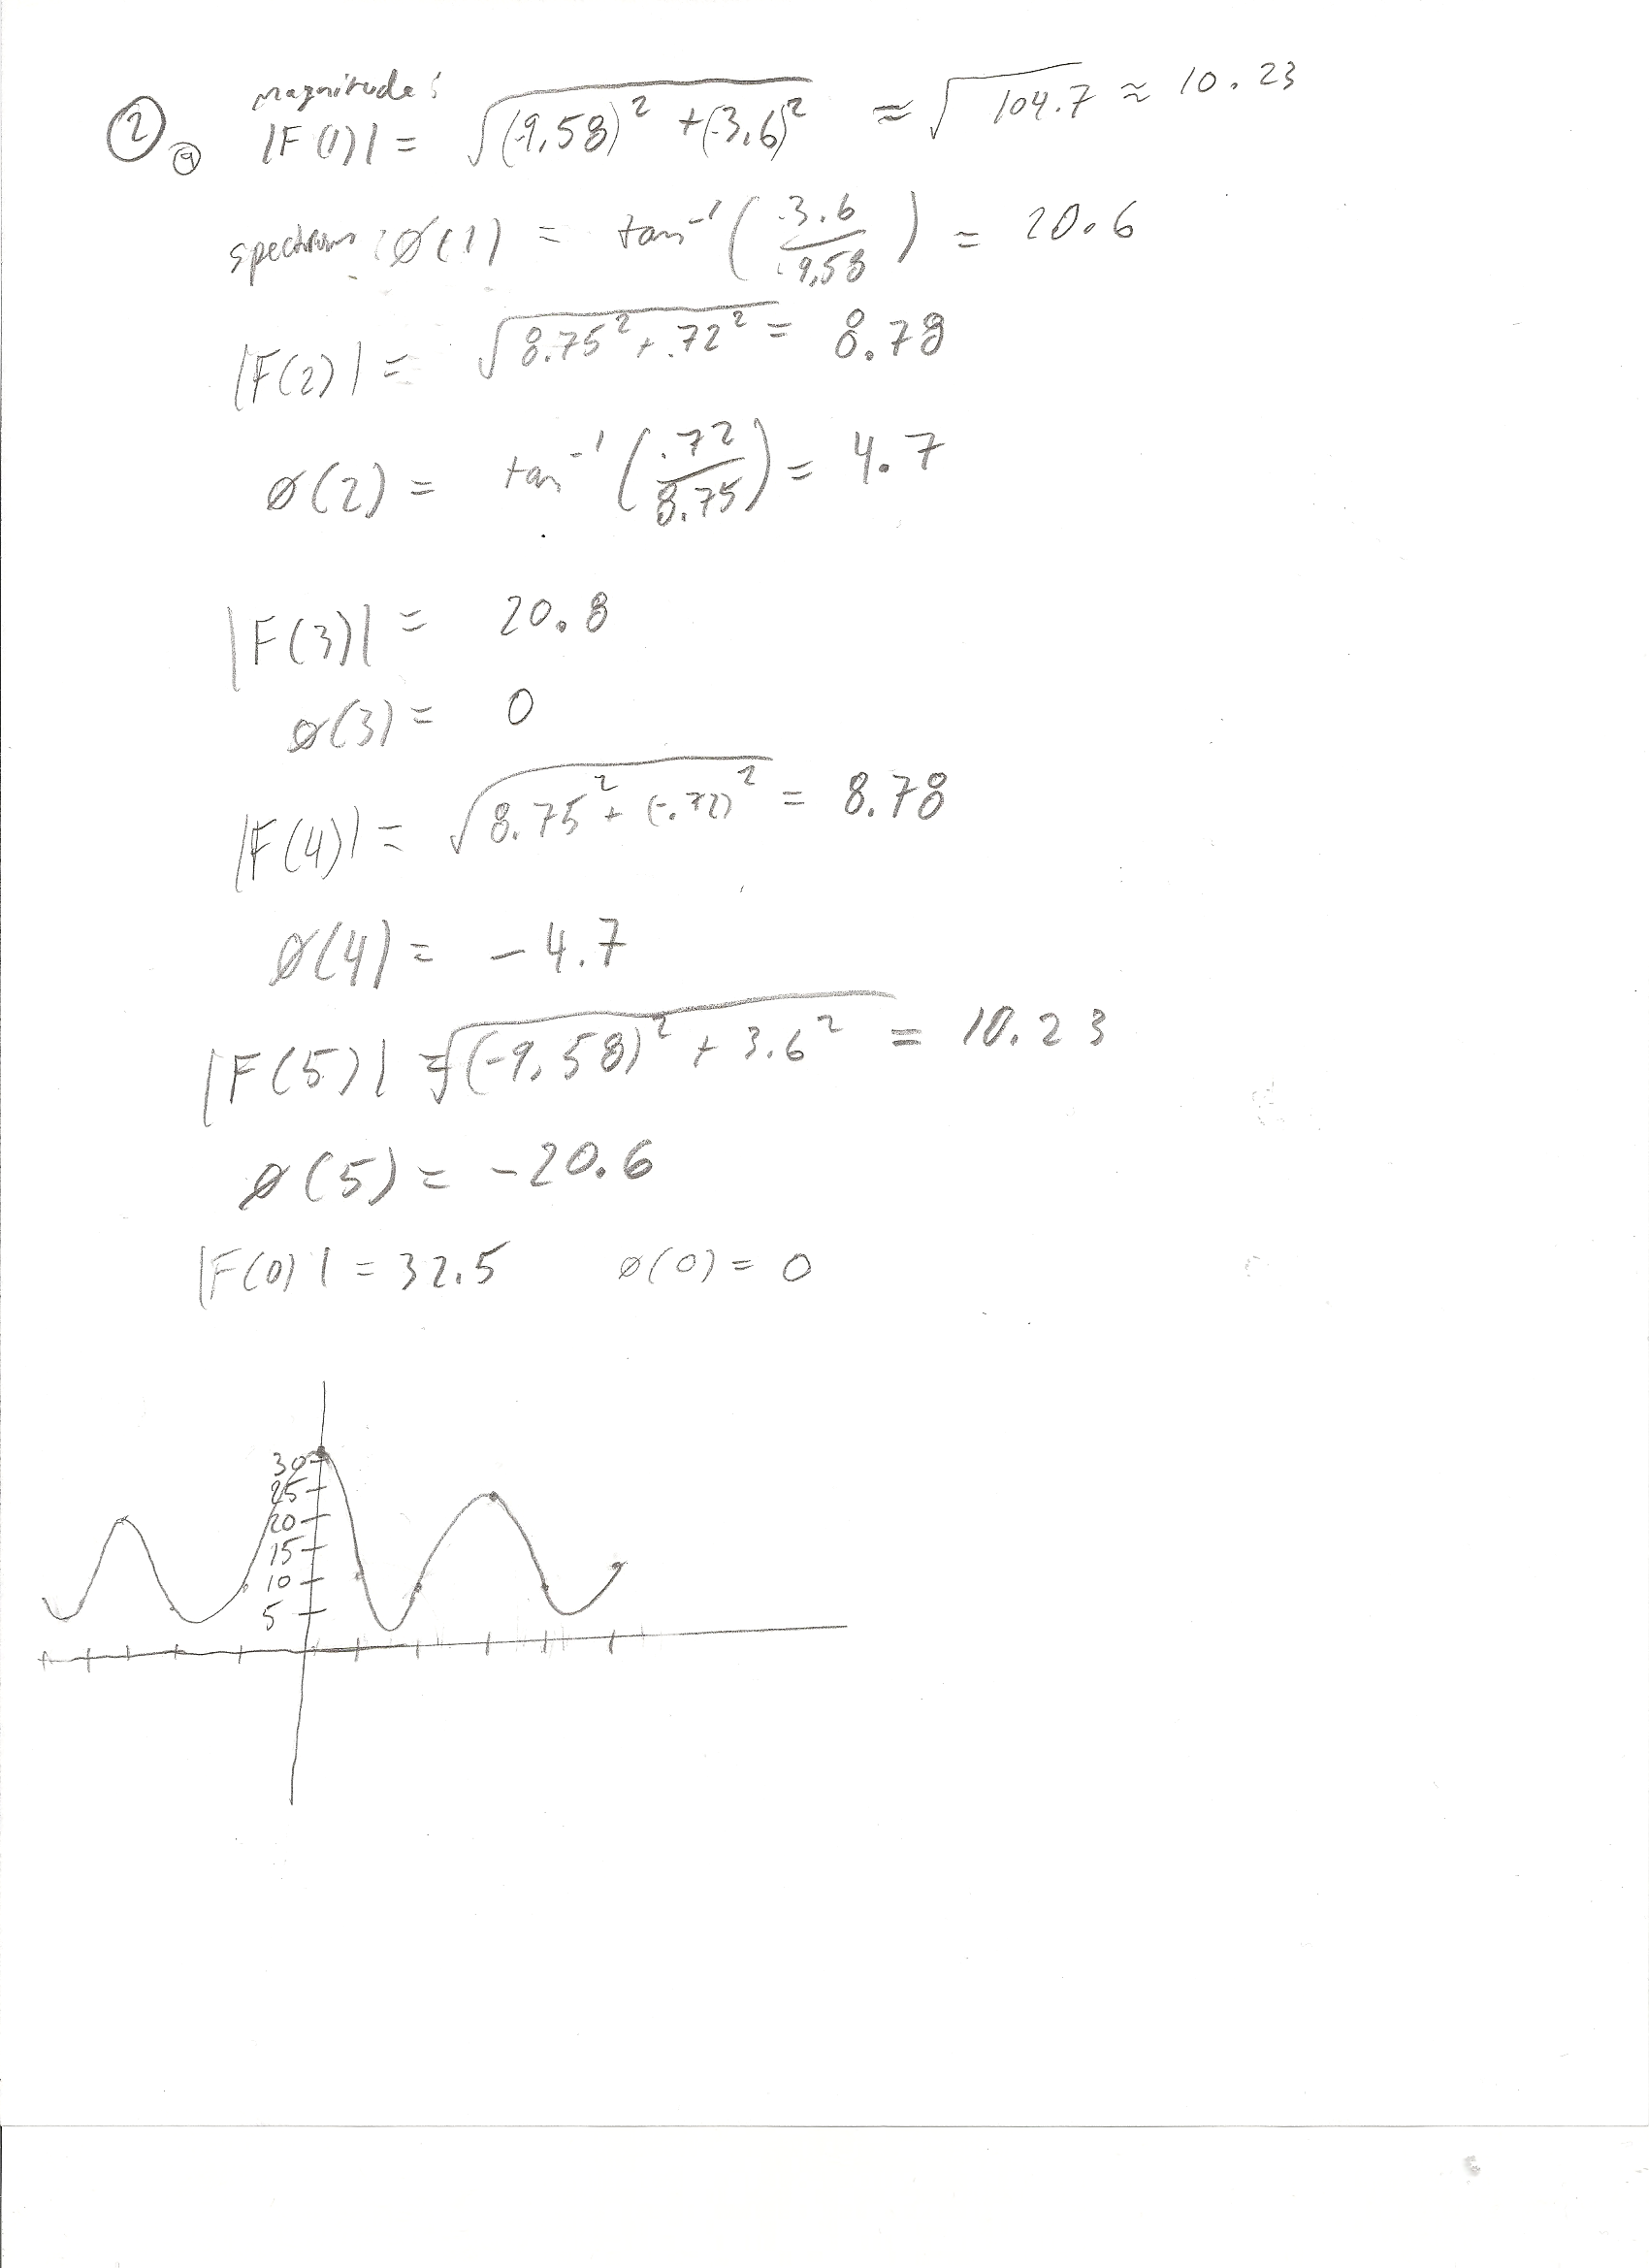 ② magnitude:
ⓐ |F(1)| = √((-9.58)² + (-3.6)²) ≈ √104.7 ≈ 10.23
spectrum: ø(1) = tan⁻¹(-3.6/-9.58) = 20.6
|F(2)| = √(8.75² + .72²) = 8.78
ø(2) = tan⁻¹(.72/8.75) = 4.7
|F(3)| = 20.8
ø(3) = 0
|F(4)| = √(8.75² + (-.72)²) = 8.78
ø(4) = -4.7
|F(5)| = √((-9.58)² + 3.6²) = 10.23
ø(5) = -20.6
|F(0)| = 32.5 ø(0) = 0
30
25
20
15
10
5